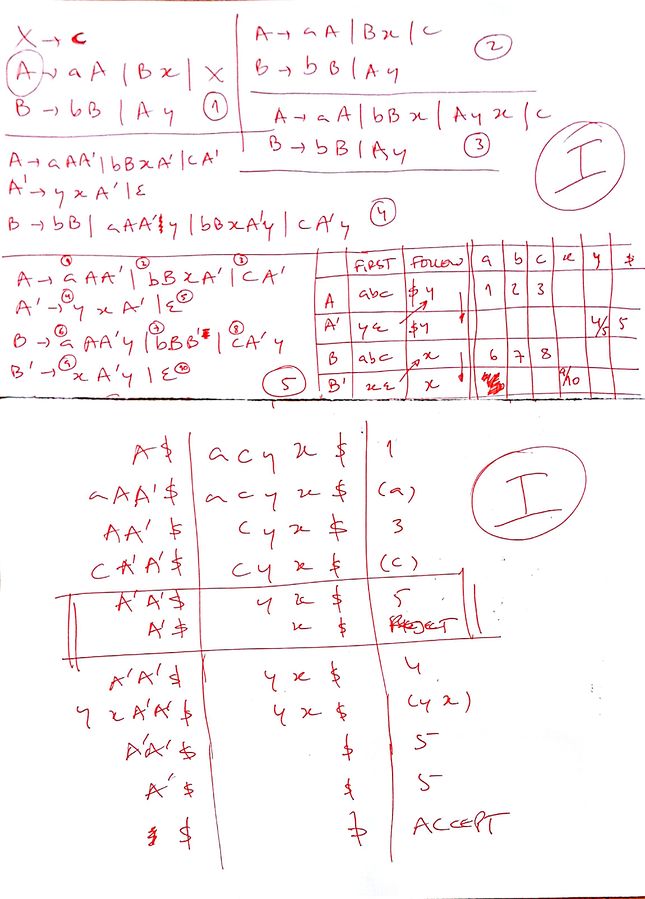 X → c
A → aA | Bx | X
B → bB | Ay ①
A → aA | Bx | c ②
B → bB | Ay
A → aA | bBx | Ayx | c
B → bB | Ay ③
I
A → aAA' | bBxA' | cA'
A' → yxA' | ε
B → bB | aAA'y | bBxA'y | cA'y ④
A → ① aAA' | ② bBxA' | ③ cA'
A' → ④ yxA' | ε ⑤
B → ⑥ aAA'y | ⑦ bBB' | ⑧ cA'y
B' → ⑨ xA'y | ε ⑩
⑤
FIRST FOLLOW a b c x y $
A abc $y 1 2 3
A' yε $y 4/5 5
B abc x 6 7 8
B' xε x 9/10
I
A$ acyx$ 1
aAA'$ acyx$ (a)
AA'$ cyx$ 3
cA'A'$ cyx$ (c)
A'A'$ yx$ 5
A'$ x$ REJECT
A'A'$ yx$ 4
yxA'A'$ yx$ (yx)
A'A'$ $ 5
A'$ $ 5
$ $ ACCEPT